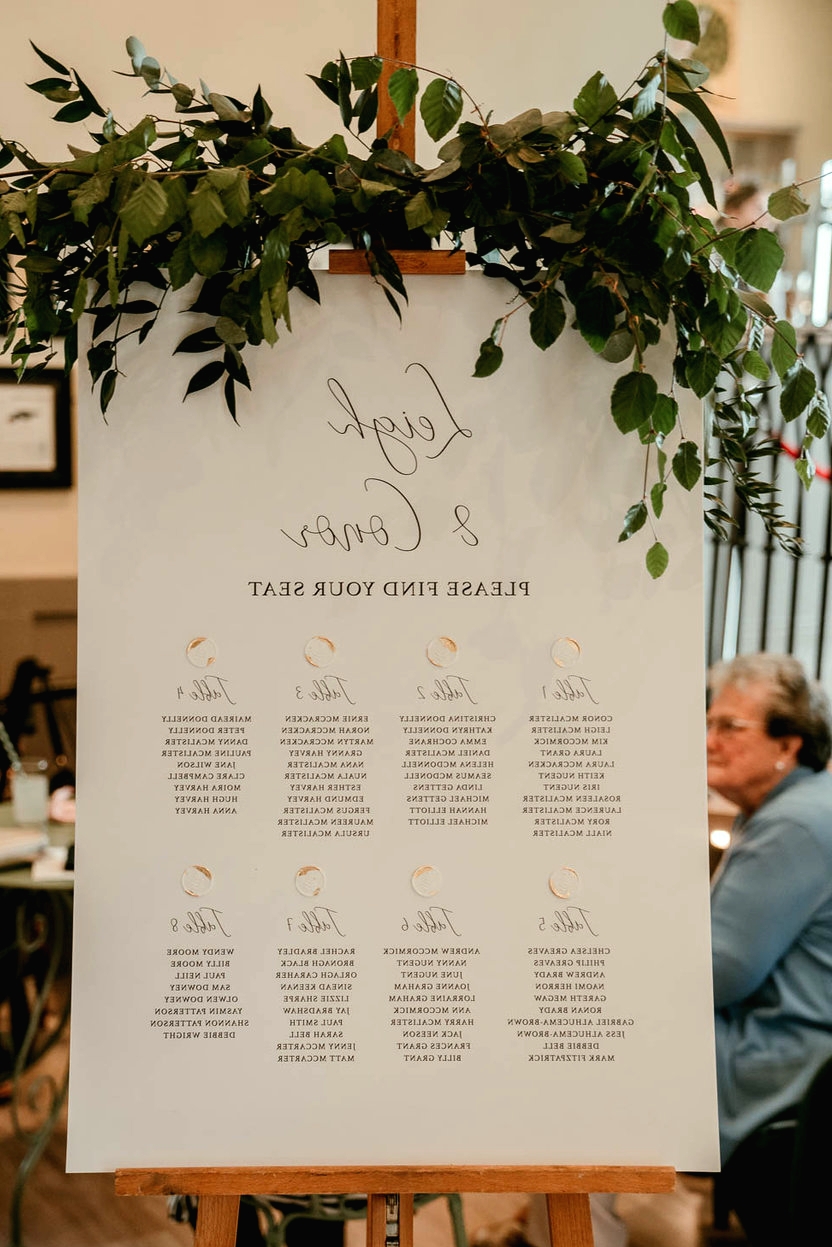 Leigh
& Conor
PLEASE FIND YOUR SEAT
Table 1
CONOR MCALISTER
LEIGH MCALISTER
KIM MCCORMICK
LAURA GRANT
LAURA MCCRACKEN
KEITH NUGENT
IRIS NUGENT
ROSALEEN MCALISTER
LAURENCE MCALISTER
RORY MCALISTER
NIALL MCALISTER
Table 2
CHRISTINA DONNELLY
KATHRYN DONNELLY
EMMA COCHRANE
DANIEL MCALISTER
HELENA MCDONNELL
SEAMUS MCDONNELL
LINDA GETTENS
MICHAEL GETTENS
HANNAH ELLIOTT
MICHAEL ELLIOTT
Table 3
ERNIE MCCRACKEN
NORAH MCCRACKEN
MARTYN MCCRACKEN
GRANNY HARVEY
NANA MCALISTER
NUALA MCALISTER
ESTHER HARVEY
EDMUND HARVEY
FERGUS MCALISTER
MAUREEN MCALISTER
URSULA MCALISTER
Table 4
MAIREAD DONNELLY
PETER DONNELLY
DANNY MCALISTER
PAULINE MCALISTER
JANE WILSON
CLARE CAMPBELL
MOIRA HARVEY
HUGH HARVEY
ANNA HARVEY
Table 5
CHELSEA GREAVES
PHILIP GREAVES
ANDREW BRADY
NAOMI HERRON
GARETH MEGAW
RONAN BRADY
GABRIEL ALHUCEMA-BROWN
JESS ALHUCEMA-BROWN
DEBBIE BELL
MARK FITZPATRICK
Table 6
ANDREW MCCORMICK
NANNY NUGENT
JUNE NUGENT
JOANNE GRAHAM
LORRAINE GRAHAM
ANN MCCORMICK
HARRY MCALISTER
JACK NESON
FRANCES GRANT
BILLY GRANT
Table 7
RACHEL BRADLEY
BRONAGH BLACK
ORLAGH CAHERAH
SINEAD KEENAN
LIZZIE SHARPE
JAY BRADSHAW
PAUL SMITH
SARAH BELL
JENNY MCCARTER
MATT MCCARTER
Table 8
WENDY MOORE
BILLY MOORE
PAUL NEILL
SAM DOWNEY
OLWEN DOWNEY
YASMIN PATTERSON
SHANNON PATTERSON
DEBBIE WRIGHT